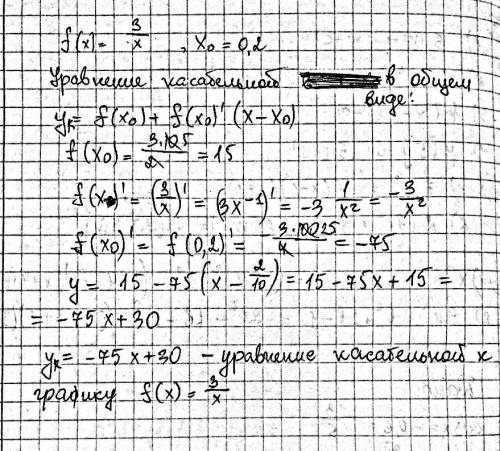 f(x) = 3/x , x₀ = 0,2
Уравнение касательной в общем
виде:
yₖ = f(x₀) + f(x₀)' (x - x₀)
f(x₀) = 3·10/2 = 15
f(x)' = (3/x)' = (3x⁻¹)' = -3 1/x² = -3/x²
f(x₀)' = f(0,2)' = -3·100/4 = -75
y = 15 - 75(x - 2/10) = 15 - 75x + 15 =
= -75x + 30
yₖ = -75x + 30 - уравнение касательной к
графику f(x) = 3/x